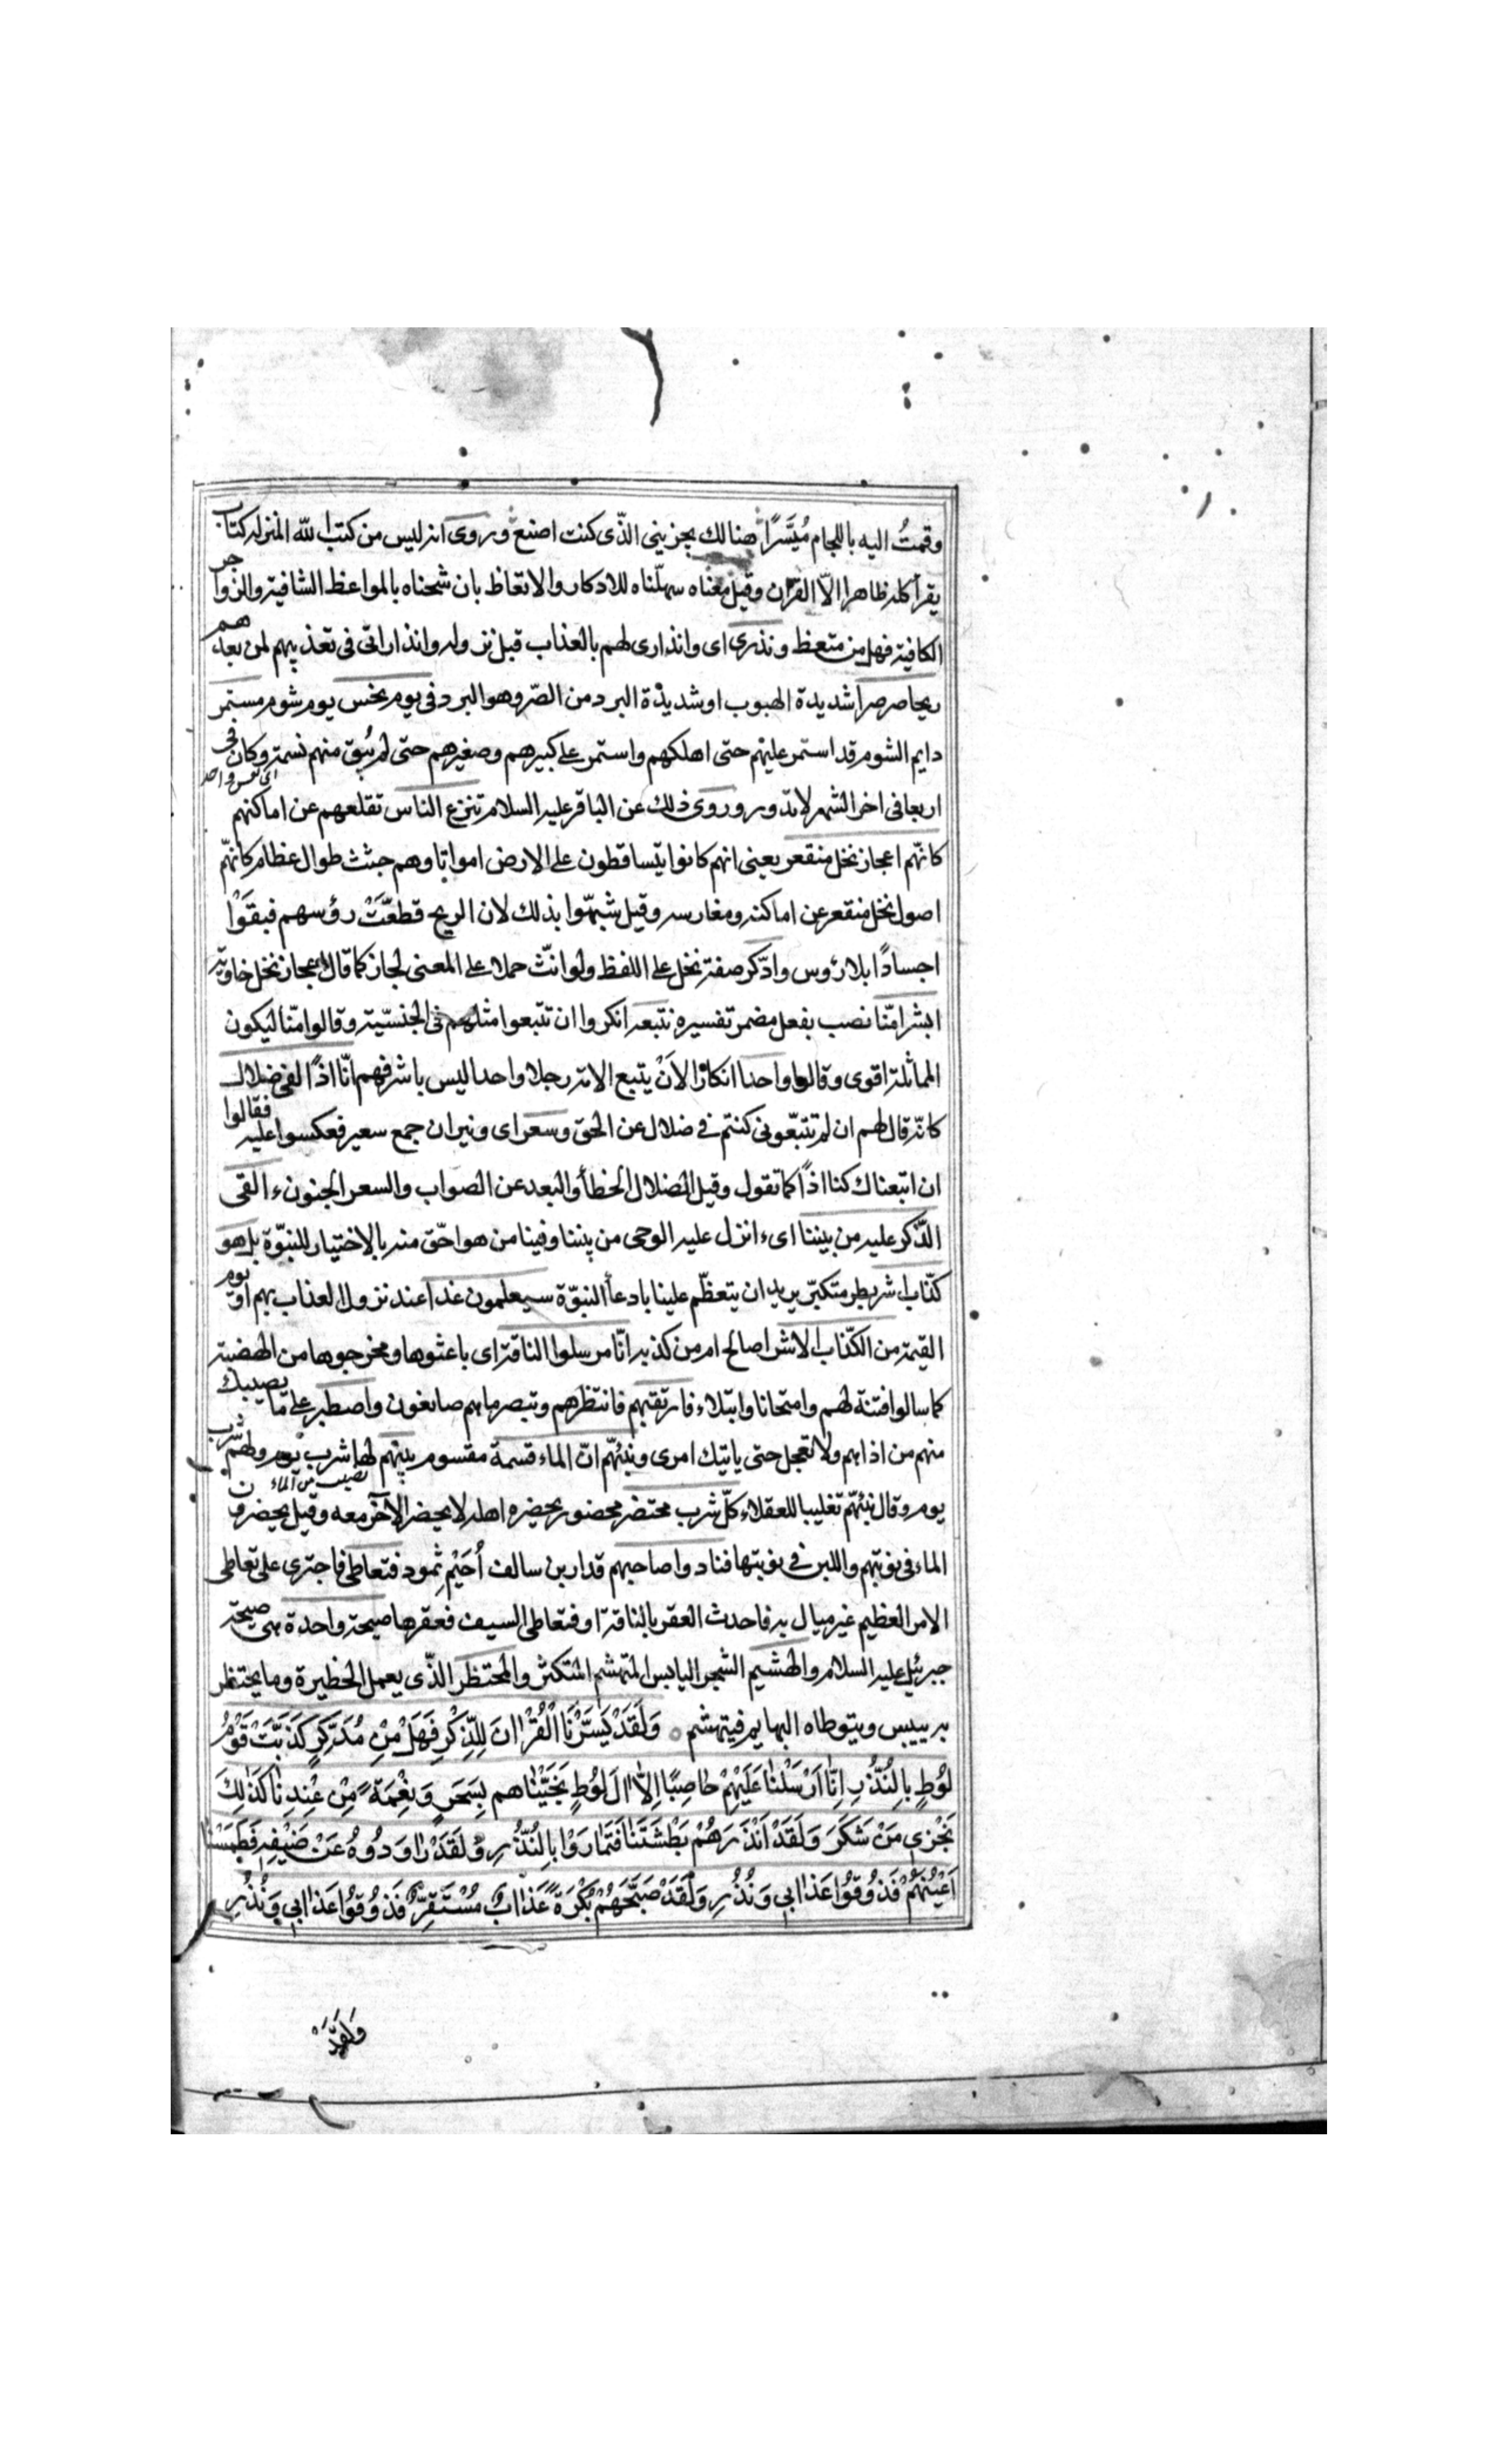 وقمتُ اليه باللجام مُيَسَّرًا هنالك يجزيني الذّى كنت اصنع وروى انه ليس من كتب الله المنزله كتاب
يقرأ كله ظاهرا الاّ القرآن وقيل معناه سهلّناه للادكار والاتعاظ بان شحناه بالمواعظ الشافية والزواجر
الكافية فهل من متعظ ونذرى اى وانذارى لهم بالعذاب قبل نزوله وانذاراتى فى تعذيبهم لمن بعدهم
ريحا صرصرا شديدة الهبوب او شديدة البرد من الصّر وهو البرد فى يوم نحس يوم شوم مستمر
دايم الشوم قد استمر عليهم حتى اهلكهم واستمر على كبيرهم وصغيرهم حتى لم يُبق منهم نسمة وكان فى
اى نفس واحد
اربعا فى اخر الشهر لا تدور وروى ذلك عن الباقر عليه السلام تنزع الناس تقلعهم عن اماكنهم
كانّهم اعجاز نخل منقعر يعنى انهم كانوا يتساقطون على الارض امواتا وهم جثث طوال عظام كانّهم
اصول نخل منقعر عن اماكنه ومغارسه وقيل شبّهوا بذلك لان الريح قطعّتْ رؤسهم فبقَوْا
اجسادًا بلا رؤس وادّكر صفة نخل على اللفظ ولو انّث حملا على المعنى لجاز كما قال اعجاز نخل خاوية
ابشرا منّا نصب بفعل مضمر تفسيره نتبعه انكروا ان تتبعوا مثلهم فى الجنسيّة وقالوا منّا ليكون
المماثلة اقوى وقالوا واحدا انكارًا لاَنْ يتبع الامة رجلا واحدا ليس باشرفهم انّا اذًا لفى ضلال
كانّه قال لهم ان لم تتبّعونى كنتم فى ضلال عن الحق وسعر اى ونيران جمع سعير فعكسوا عليه فقالوا
ان اتبعناك كنا اذًا كما تقول وقيل الضلال الخطأ والبعد عن الصواب والسعر الجنون ءالقى
الذّكر عليه من بيننا اىء انزل عليه الوحى من بيننا وفينا من هو احّق منه بالاختيار للنبوّة بل هو
كذّاب اشر بطر متكبّر يريد ان يتعظّم علينا بادعأ النبوّة سيعلمون غدا عند نزول العذاب بهم او يوم
القيمة من الكذّاب الاشر اصالح ام من كذبه انّا مرسلوا الناقة اى باعثوها ومخرجوها من الهضبة
كما سالوا فتنة لهم وامتحانا وابتلاء فارتقبهم فانتظرهم وتبصر ماهم صانعون واصطبر على ما يصيبك
منهم من اذاهم ولا تعجل حتى ياتيك امرى ونبئهّم انّ الماء قسمة مقسوم بينهم لها شرب يوم ولهم شرب
نصيب من الماء
يوم وقال نبئهّم تغليبا للعقلاء كلّ شرب محتضر محضور يحضره اهله لا يحضر الآخر معه وقيل يحضرون
الماء فى نوبتهم واللبن فى نوبتها فنادوا صاحبهم قدار بن سالف أُحَيْمِر ثمود فتعاطى فاجترى على تعاطى
الامر العظيم غير مبال به فاحدث العقر بالناقة او فتعاطى السيف فعقرها صيحة واحدة هى صيحة
جبرئيل عليه السلام والهشيم الشجر اليابس المتهشم المتكسّر والمحتظر الذّى يعمل الحظيرة وما يحتظر
به ييبس ويتوطاه البهايم فيتهشم وَلَقَدْ يَسَّرْنَا الْقُرْانَ لِلذِّكْرِ فَهَلْ مِنْ مُدَّكِرٍ كَذَّبَتْ قَوْمُ
لُوطٍ بِالنُّذُرِ اِنَّا اَرْسَلْنَا عَلَيْهِمْ حَاصِبًا اِلاَّ الَ لُوطٍ نَجَّيْنَاهم بِسَحَرٍ وَنِعْمَةً مِنْ عِنْدِنَا كَذَلِكَ
نَجْزِي مَنْ شَكَرَ وَلَقَدْ اَنْذَرَهُمْ بَطْشَتَنَا فَتَمَارَوْا بِالنُّذُرِ وَلَقَدْ رَاوَدُوهُ عَنْ ضَيْفِهِ فَطَمَسْنَا
اَعْيُنَهُمْ فَذُوقُوا عَذَابِي وَنُذُرِ وَلَقَدْ صَبَّحَهُمْ بُكْرَةً عَذَابٌ مُسْتَقِرٌّ فَذُوقُوا عَذَابِي وَنُذُرِ
وَلَقَدْ